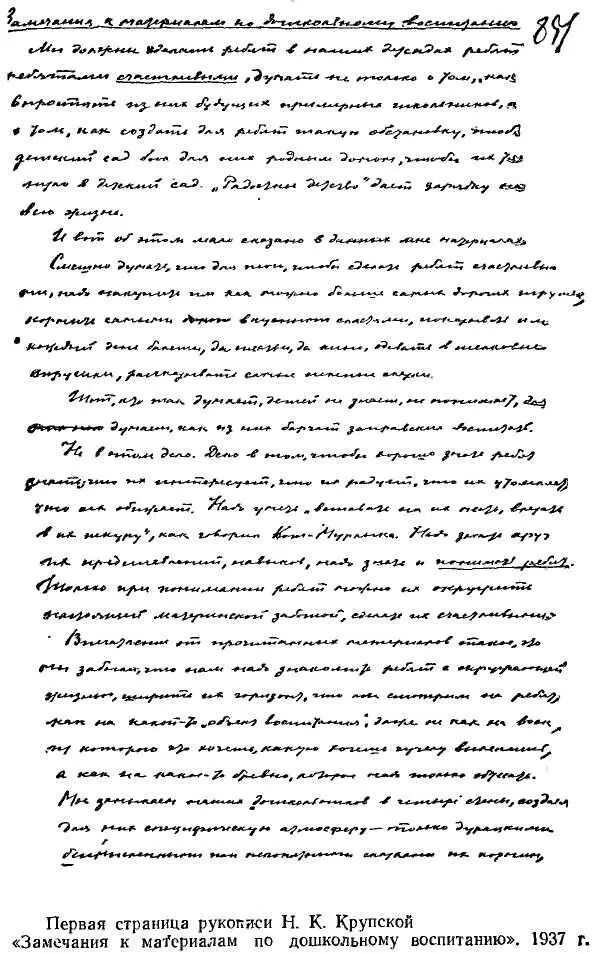 Замечания к материалам по дошкольному воспитанию
Мы должны сделать ребят в наших детсадах ребят
ребятами счастливыми, думать не только о том, как
вырастить из них будущих примерных школьников, а
о том, как создать для ребят такую обстановку, чтобы
детский сад был для них родным домом, чтобы их
в детский сад. „Радостное детство" дает зарядку на
всю жизнь.
И вот об этом мало сказано в данных мне материалах
Смешно думать, что для того, чтобы сделать ребят счастливы
ми, надо накупить им как можно больше самых дорогих игрушек,
кормить самыми вкусными сластями, показывать им
каждый день балеты, да танцы, да кино, одевать в шелковые
трусики, рассказывать самые нежные сказки.
Тот, кто так думает, детей не знает, не понимает,
думает, как из них барчат заправских воспитать.
Не в этом дело. Дело в том, чтобы хорошо знать ребят
знать, что их интересует, что их радует, что их утомляет,
что их обижает. Надо уметь „вставать на их место, влезать
в их шкуру", как говорил Кот-Мурлыка. Надо знать круг
их представлений, навыков, надо знать и понимать ребят.
Только при понимании ребят можно их окружить
настоящей материнской заботой, сделать их счастливыми
Впечатление от прочитанных материалов такое, что
мы забыли, что нам надо знакомить ребят с окружающей
жизнью, ширить их горизонт, что мы смотрим на ребят
как на какой-то „объект воспитания", даже не как на воск,
из которого что хочешь, какую хочешь куклу вылепишь,
а как на какое-то бревно, которое надо только обтесать.
Мы замыкаем наших дошкольников в четыре стены, создаем
для них специфическую атмосферу — только дурацкими
бессмысленными или непонятными сказками их кормим,
Первая страница рукописи Н. К. Крупской
«Замечания к материалам по дошкольному воспитанию». 1937 г.